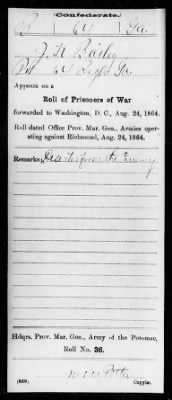 Confederate.
B 64 Ga.
J. N. Bailey
Pvt 64 Regt Ga.
Appears on a
Roll of Prisoners of War
forwarded to Washington, D. C., Aug. 24, 1864.
Roll dated Office Prov. Mar. Gen., Armies oper-
ating against Richmond, Aug. 24, 1864.
Remarks: Deserter from the Enemy
Hdqrs. Prov. Mar. Gen., Army of the Potomac,
Roll No. 36.
(639) Copyist.